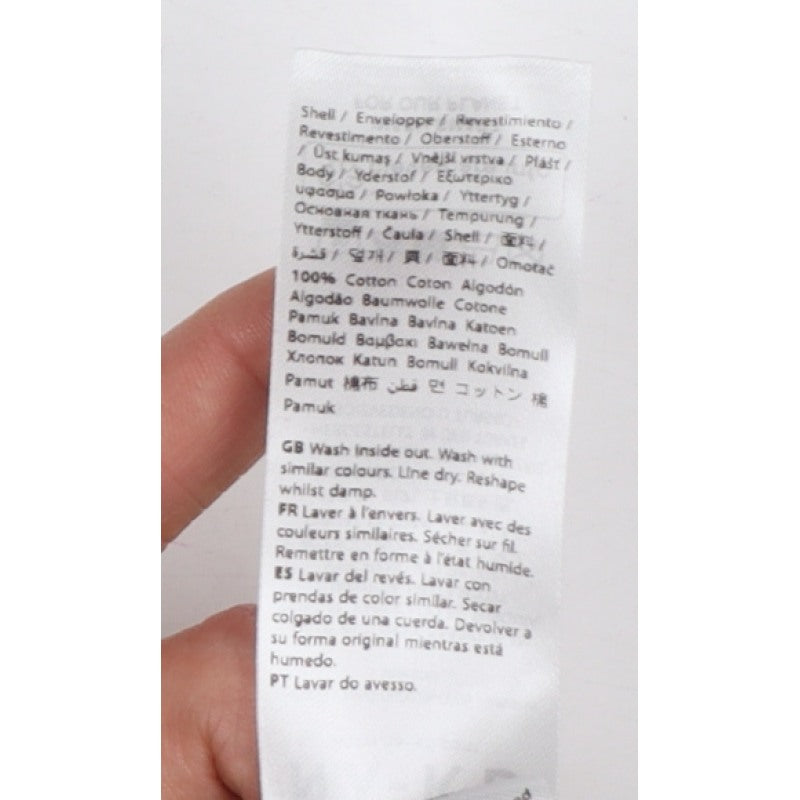 Shell / Enveloppe / Revestimiento /
Revestimento / Oberstoff / Esterno
/ Üst kumaş / Vnější vrstva / Plášť /
Body / Yderstof / Εξωτερικο
υφασμα / Powłoka / Yttertyg /
Основная ткань / Tempurung /
Ytterstoff / Čaula / Shell / 面料 /
قشرة / 겉개 / 貝 / 面料 / Omotač
100% Cotton Coton Algodón
Algodão Baumwolle Cotone
Pamuk Bavlna Bavlna Katoen
Bomuld Βαμβακι Bawełna Bomull
Хлопок Katun Bomull Kokvilna
Pamut 棉布 قطن 면 コットン 棉
Pamuk
GB Wash inside out. Wash with
similar colours. Line dry. Reshape
whilst damp.
FR Laver à l'envers. Laver avec des
couleurs similaires. Sécher sur fil.
Remettre en forme à l'état humide.
ES Lavar del revés. Lavar con
prendas de color similar. Secar
colgado de una cuerda. Devolver a
su forma original mientras está
humedo.
PT Lavar do avesso.